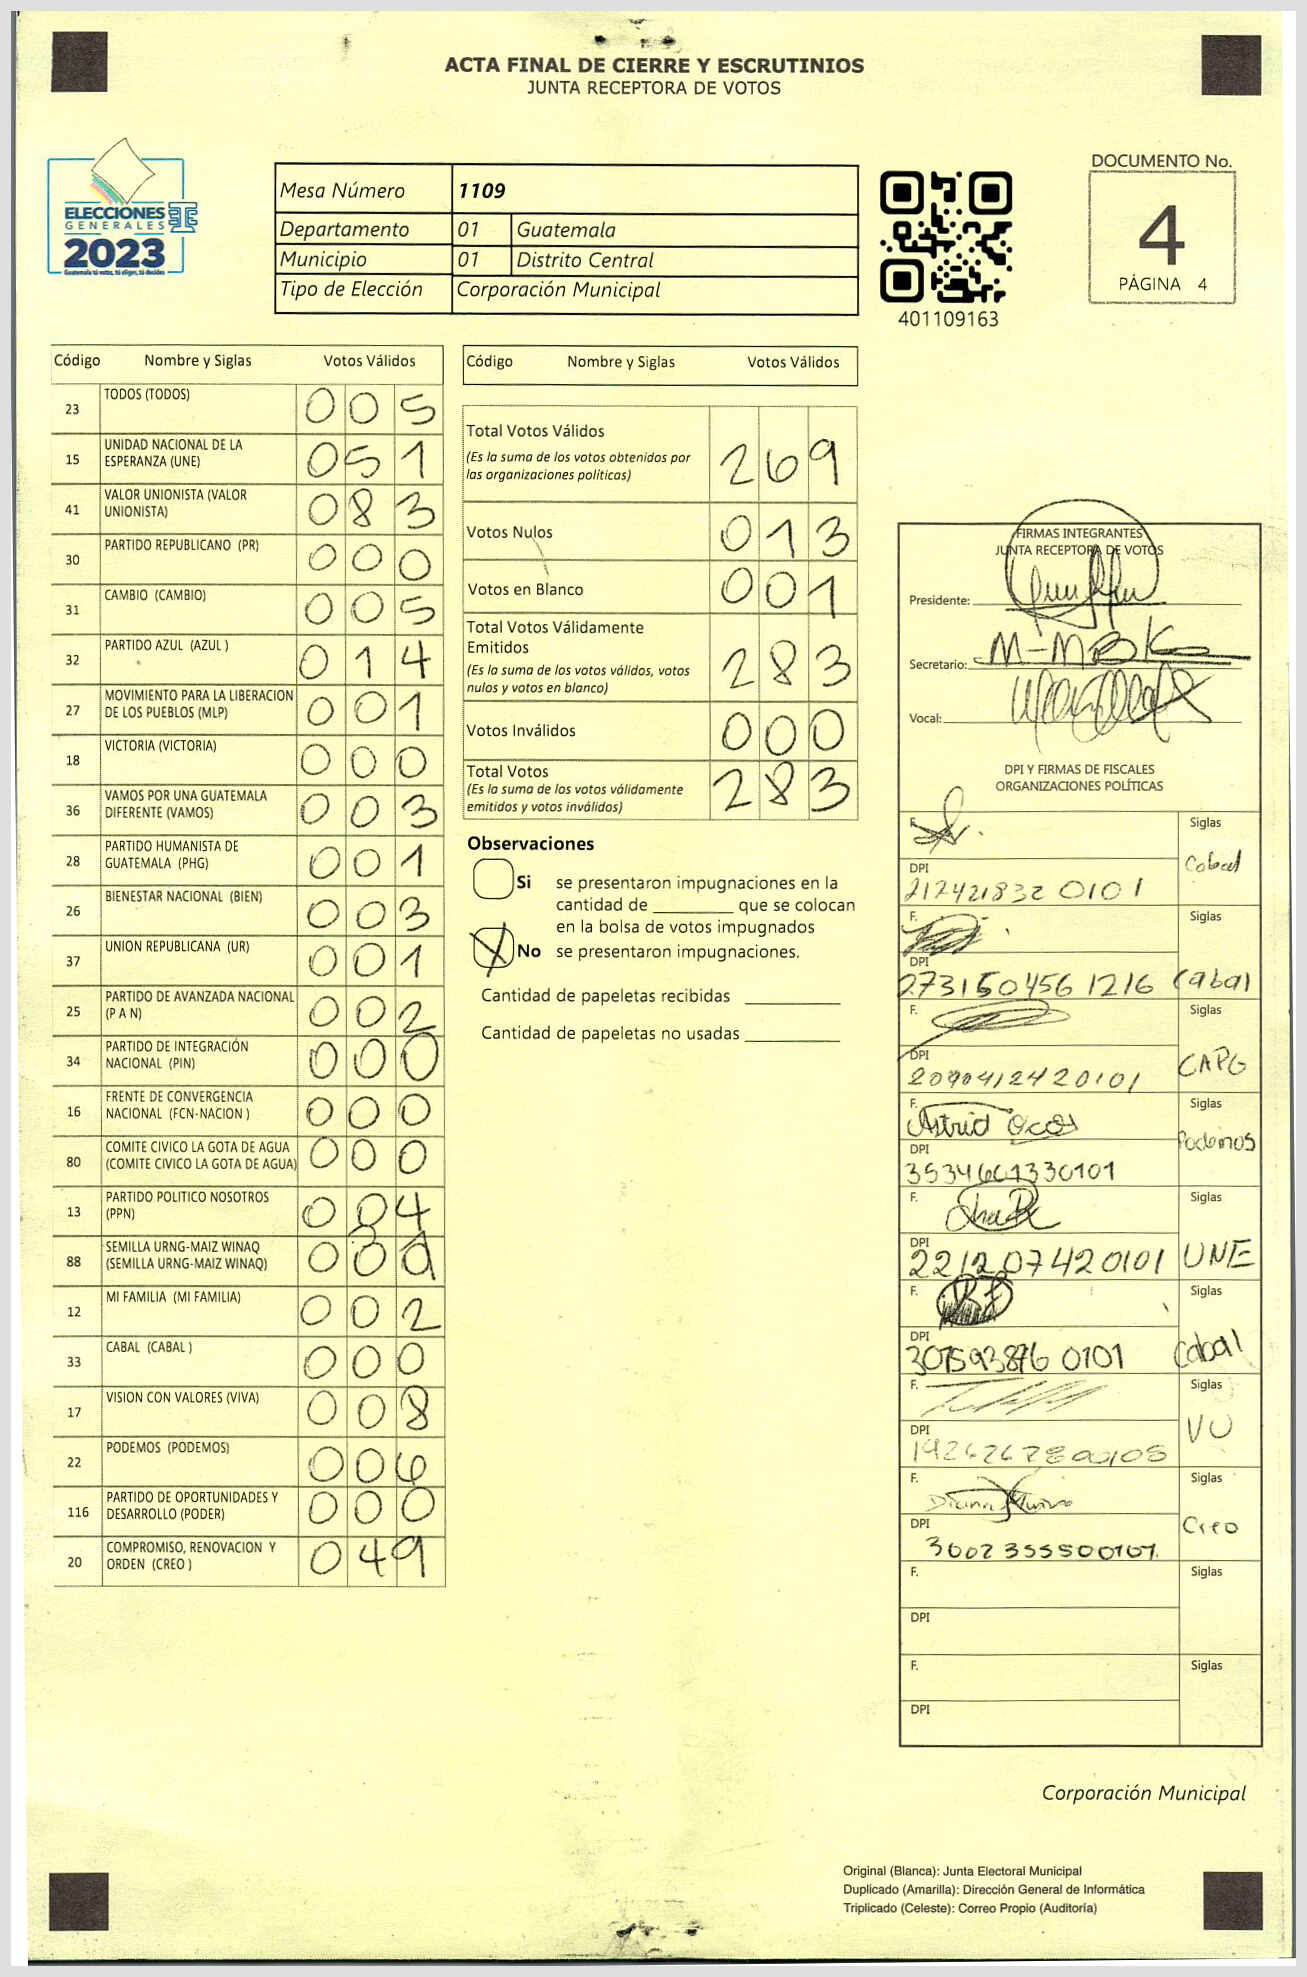 ACTA FINAL DE CIERRE Y ESCRUTINIOS
JUNTA RECEPTORA DE VOTOS
ELECCIONES
GENERALES
2023
Guatemala tú votas, tú eliges, tú decides
Mesa Número 1109
Departamento 01 Guatemala
Municipio 01 Distrito Central
Tipo de Elección Corporación Municipal
401109163
DOCUMENTO No.
4
PÁGINA 4
Código Nombre y Siglas Votos Válidos
23 TODOS (TODOS) 005
15 UNIDAD NACIONAL DE LA
ESPERANZA (UNE) 051
41 VALOR UNIONISTA (VALOR
UNIONISTA) 083
30 PARTIDO REPUBLICANO (PR) 000
31 CAMBIO (CAMBIO) 005
32 PARTIDO AZUL (AZUL ) 014
27 MOVIMIENTO PARA LA LIBERACION
DE LOS PUEBLOS (MLP) 001
18 VICTORIA (VICTORIA) 000
36 VAMOS POR UNA GUATEMALA
DIFERENTE (VAMOS) 003
28 PARTIDO HUMANISTA DE
GUATEMALA (PHG) 001
26 BIENESTAR NACIONAL (BIEN) 003
37 UNION REPUBLICANA (UR) 001
25 PARTIDO DE AVANZADA NACIONAL
(P A N) 002
34 PARTIDO DE INTEGRACIÓN
NACIONAL (PIN) 000
16 FRENTE DE CONVERGENCIA
NACIONAL (FCN-NACION ) 000
80 COMITE CIVICO LA GOTA DE AGUA
(COMITE CIVICO LA GOTA DE AGUA) 000
13 PARTIDO POLITICO NOSOTROS
(PPN) 004
88 SEMILLA URNG-MAIZ WINAQ
(SEMILLA URNG-MAIZ WINAQ)
12 MI FAMILIA (MI FAMILIA) 002
33 CABAL (CABAL ) 000
17 VISION CON VALORES (VIVA) 008
22 PODEMOS (PODEMOS) 006
116 PARTIDO DE OPORTUNIDADES Y
DESARROLLO (PODER) 000
20 COMPROMISO, RENOVACION Y
ORDEN (CREO ) 049
Código Nombre y Siglas Votos Válidos
Total Votos Válidos
(Es la suma de los votos obtenidos por
las organizaciones politicas) 269
Votos Nulos 013
Votos en Blanco 001
Total Votos Válidamente
Emitidos
(Es la suma de los votos válidos, votos
nulos y votos en blanco) 283
Votos Inválidos 000
Total Votos
(Es la suma de los votos válidamente
emitidos y votos inválidos) 283
Observaciones
Si se presentaron impugnaciones en la
cantidad de ________ que se colocan
en la bolsa de votos impugnados
X No se presentaron impugnaciones.
Cantidad de papeletas recibidas
Cantidad de papeletas no usadas
FIRMAS INTEGRANTES
JUNTA RECEPTORA DE VOTOS
Presidente:
Secretario:
Vocal:
DPI Y FIRMAS DE FISCALES
ORGANIZACIONES POLÍTICAS
F. Siglas
DPI Cabal
212421832 0101
F. Siglas
DPI
273150456 1216 Cabal
F. Siglas
DPI CAPG
2090412420101
F. Astrid Ocos Siglas
DPI Podemos
3534661330101
F. Siglas
DPI
221207420101 UNE
F. Siglas
DPI Cabal
F. Siglas
DPI VU
F. Siglas
DPI Creo
F. Siglas
DPI
F. Siglas
DPI
Corporación Municipal
Original (Blanca): Junta Electoral Municipal
Duplicado (Amarilla): Dirección General de Informática
Triplicado (Celeste): Correo Propio (Auditoría)